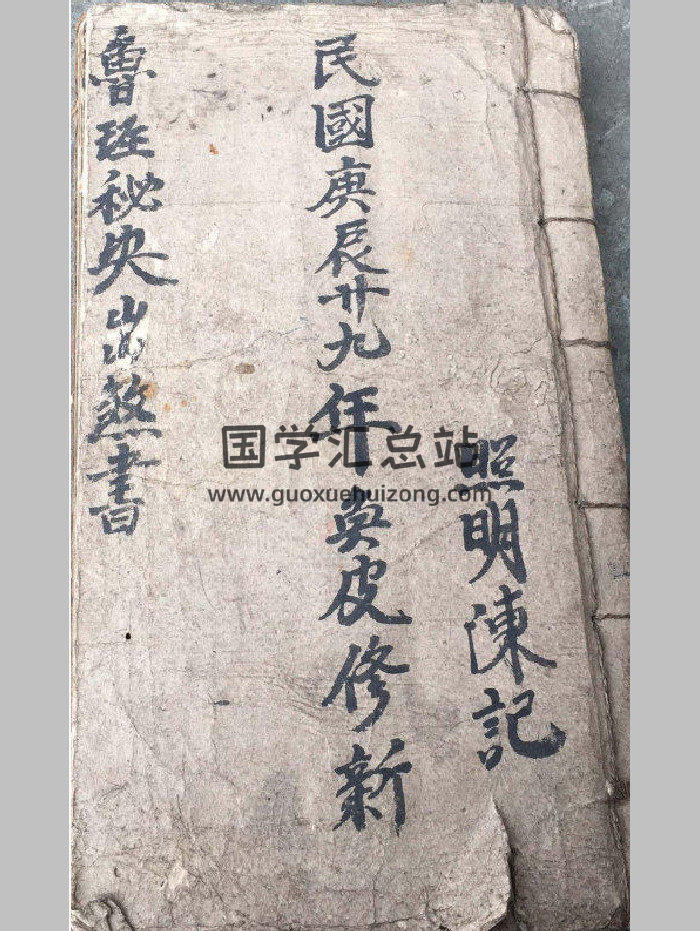 照明陳記
民國庚辰廿九年奐皮修新
魯班秘央出煞書
国学汇总站
www.guoxuehuizong.com